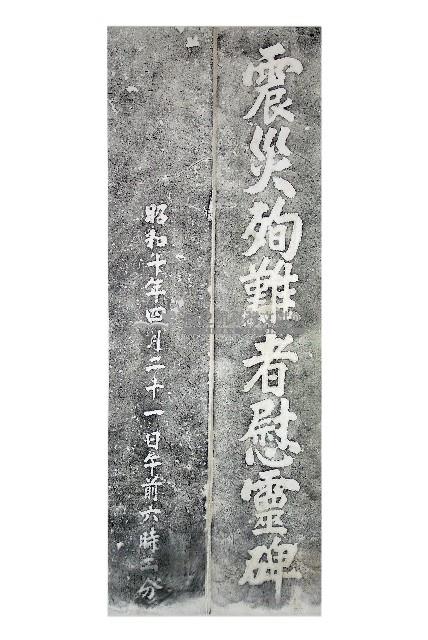 震災殉難者慰靈碑
昭和十年四月二十一日午前六時二分